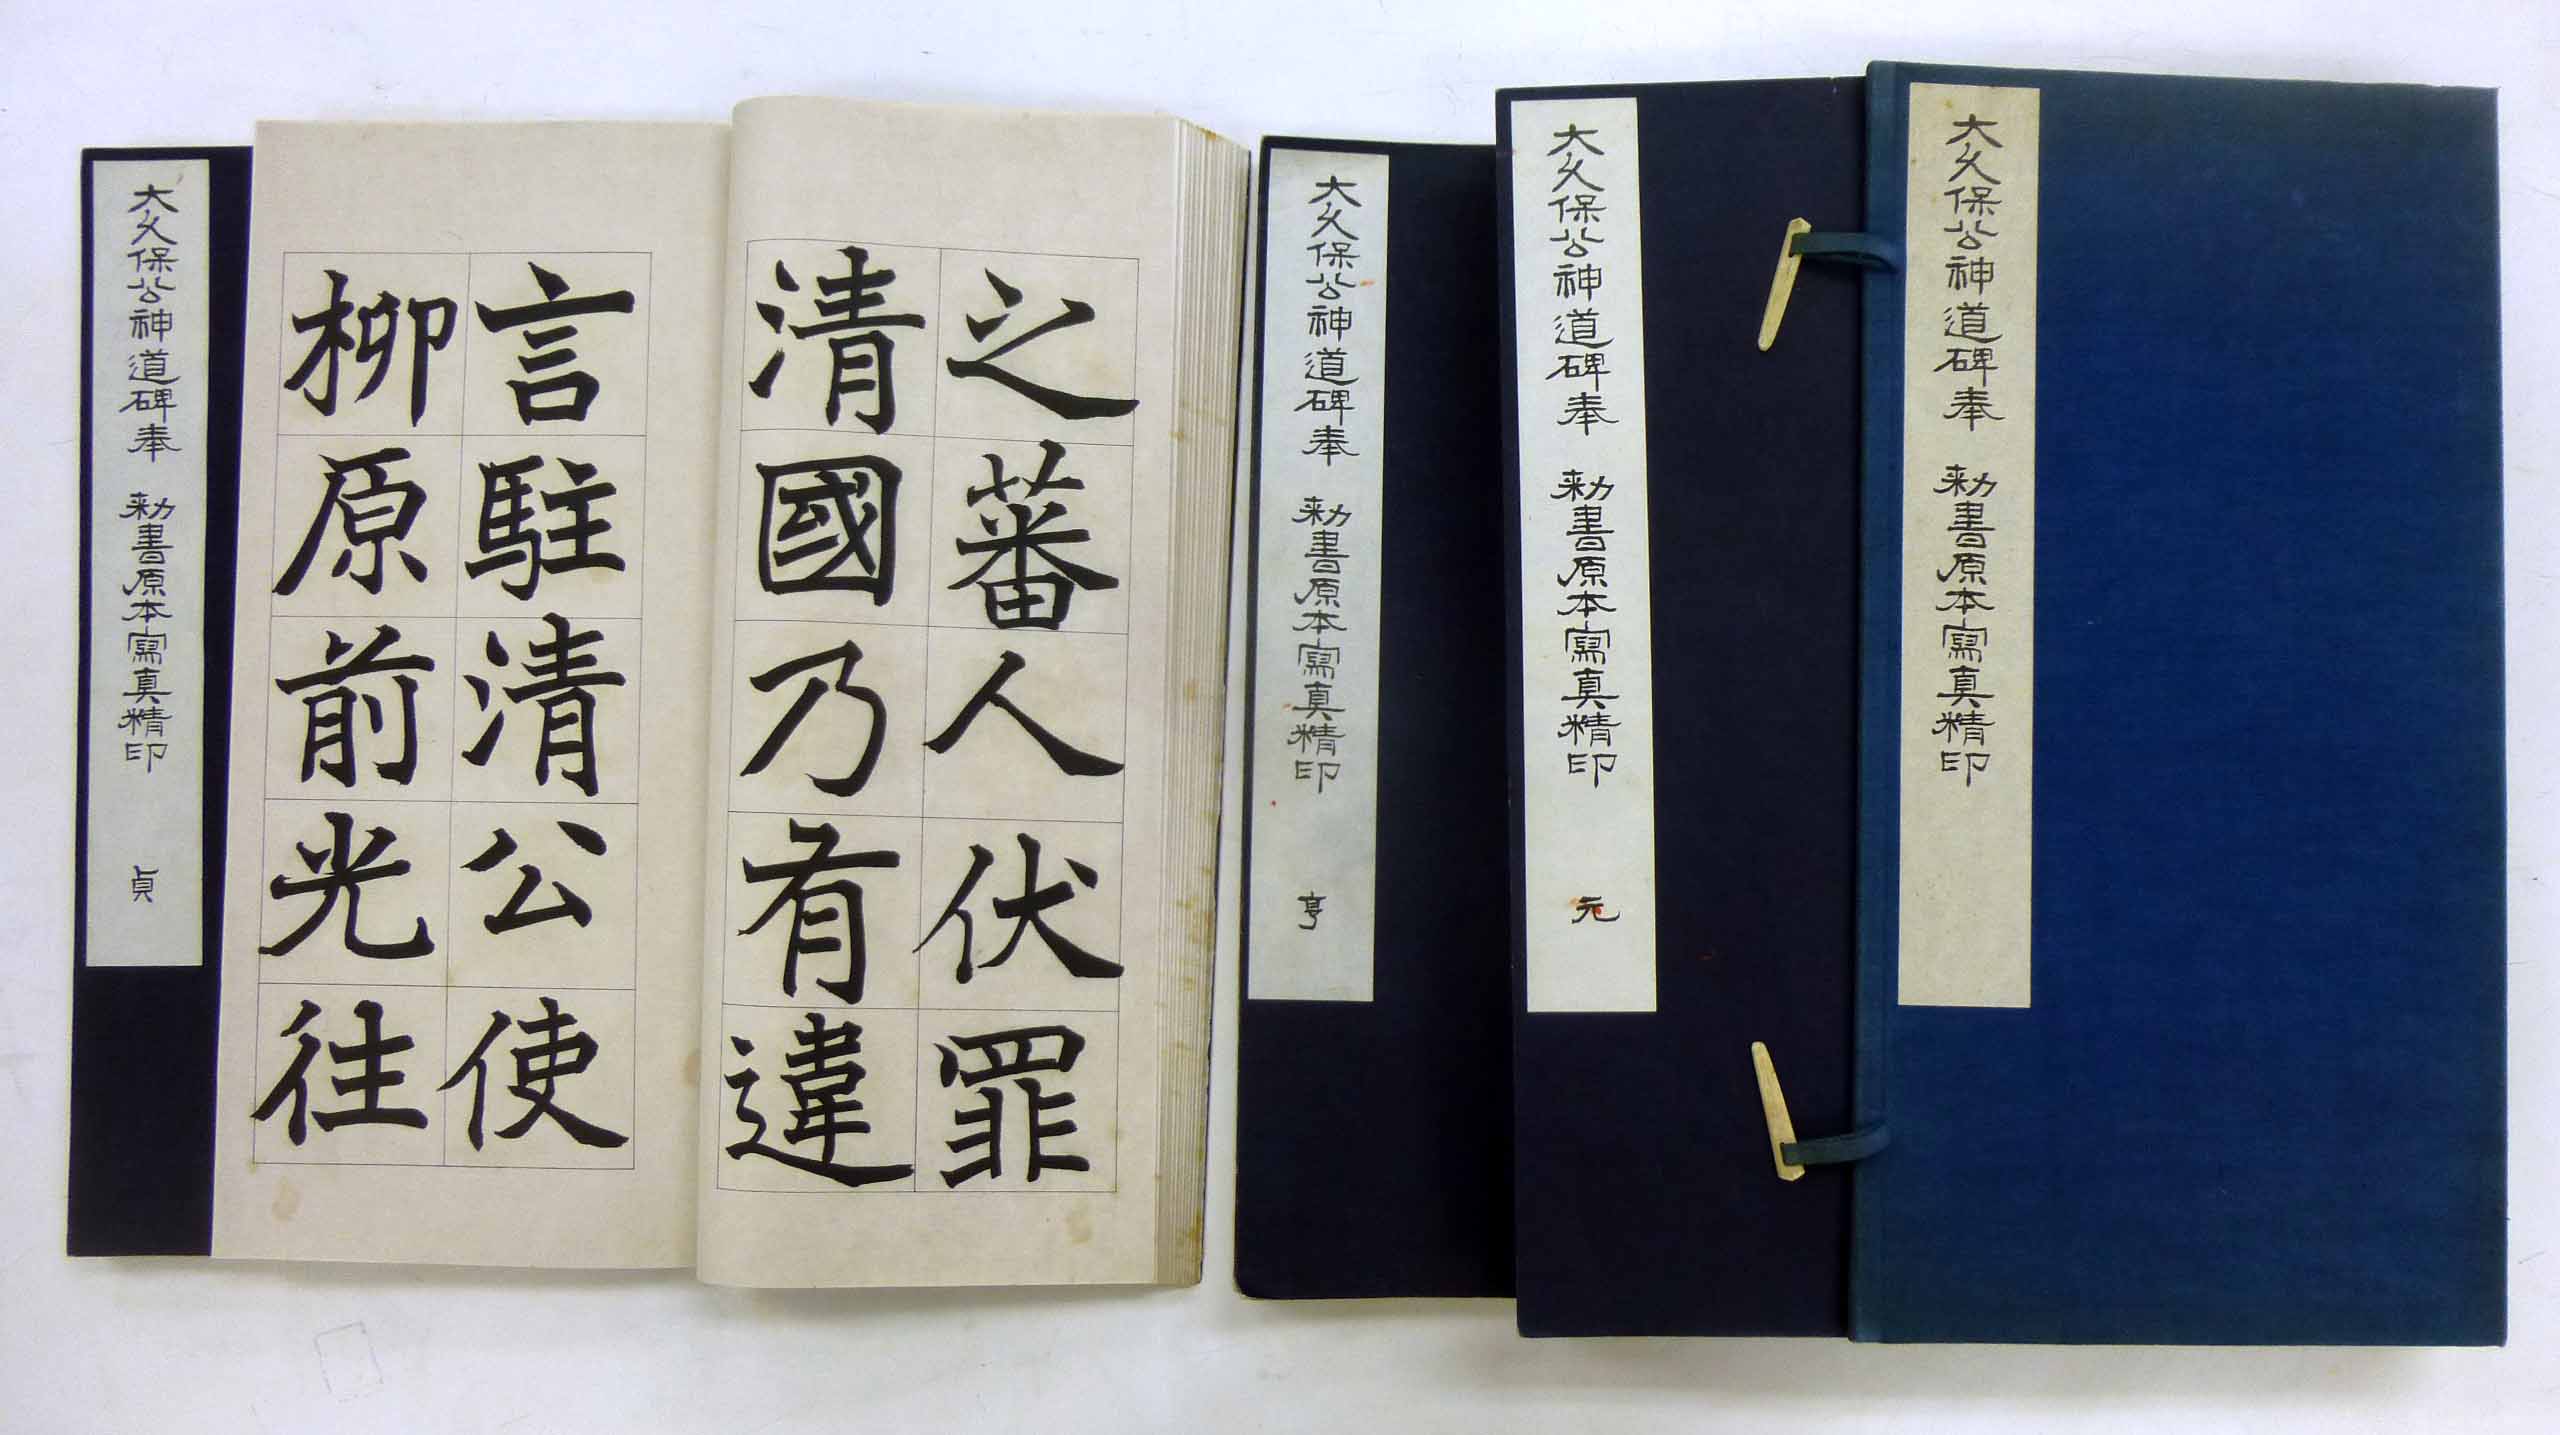 大久保公神道碑奉　勅書原本寫真精印
大久保公神道碑奉　勅書原本寫真精印　元
大久保公神道碑奉　勅書原本寫真精印　亨
之蕃人伏罪
清國乃有違
言駐清公使
柳原前光往
大久保公神道碑奉　勅書原本寫真精印　貞